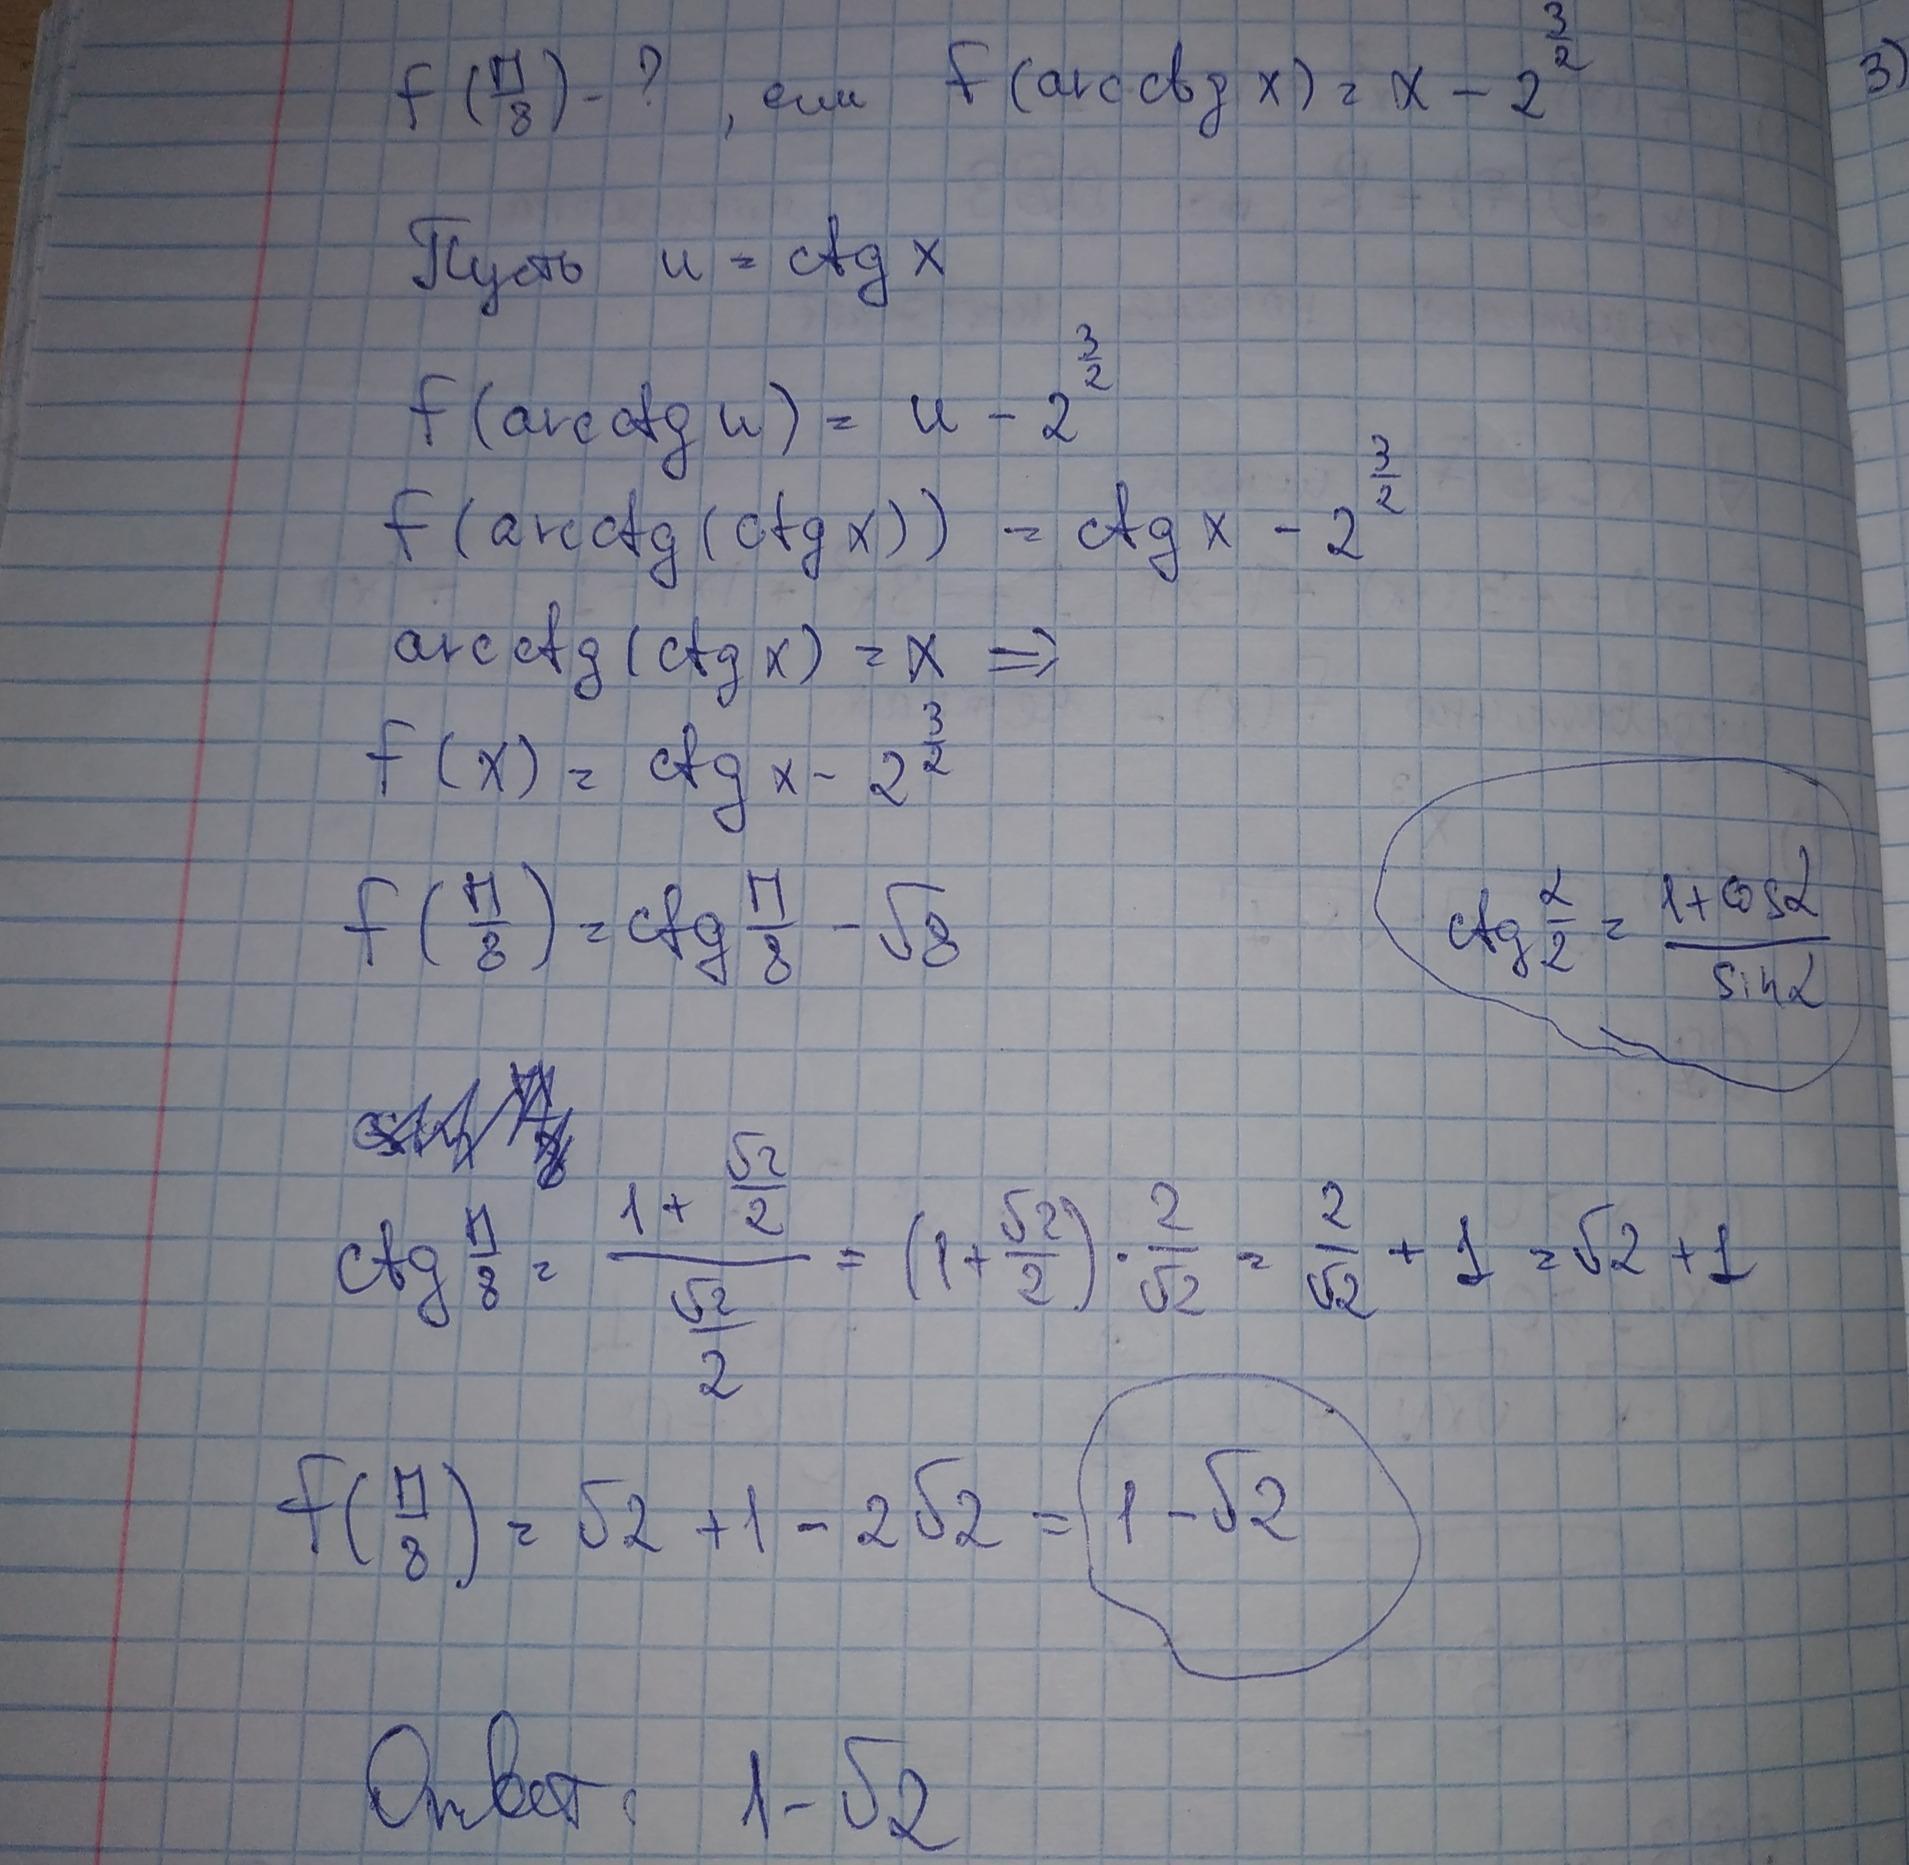 f(π/8) - ? , если f(arcctg x) = x - 2^(3/2)
3)
Пусть u = ctg x
f(arcctg u) = u - 2^(3/2)
f(arcctg(ctg x)) = ctg x - 2^(3/2)
arcctg(ctg x) = x ⇒
f(x) = ctg x - 2^(3/2)
f(π/8) = ctg π/8 - √8
ctg α/2 = (1+cosα)/sinα
ctg π/8 = (1 + √2/2)/(√2/2) = (1 + √2/2) · 2/√2 = 2/√2 + 1 = √2 + 1
f(π/8) = √2 + 1 - 2√2 = 1 - √2
Ответ: 1 - √2